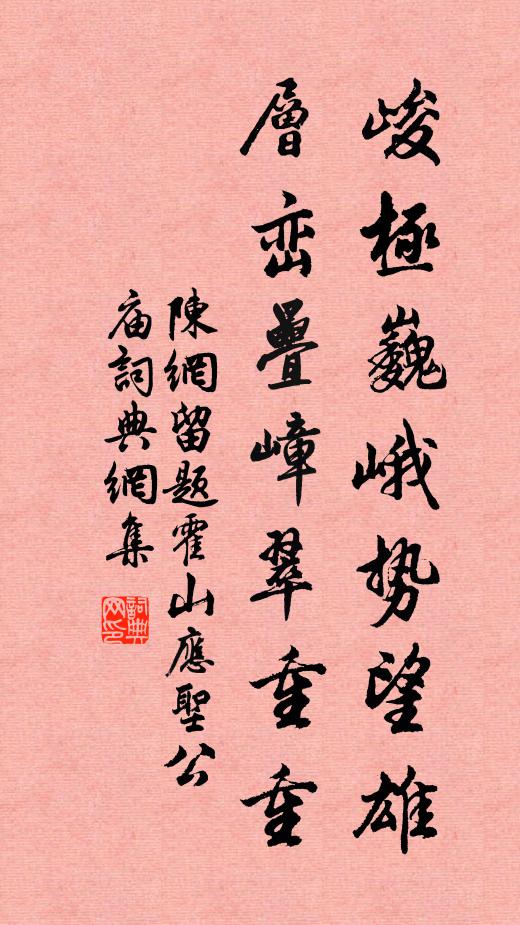 峻極巍峨势望雄
層峦疊嶂翠重重
陳網留题霍山應聖公
庙詞典網集
詞典网印